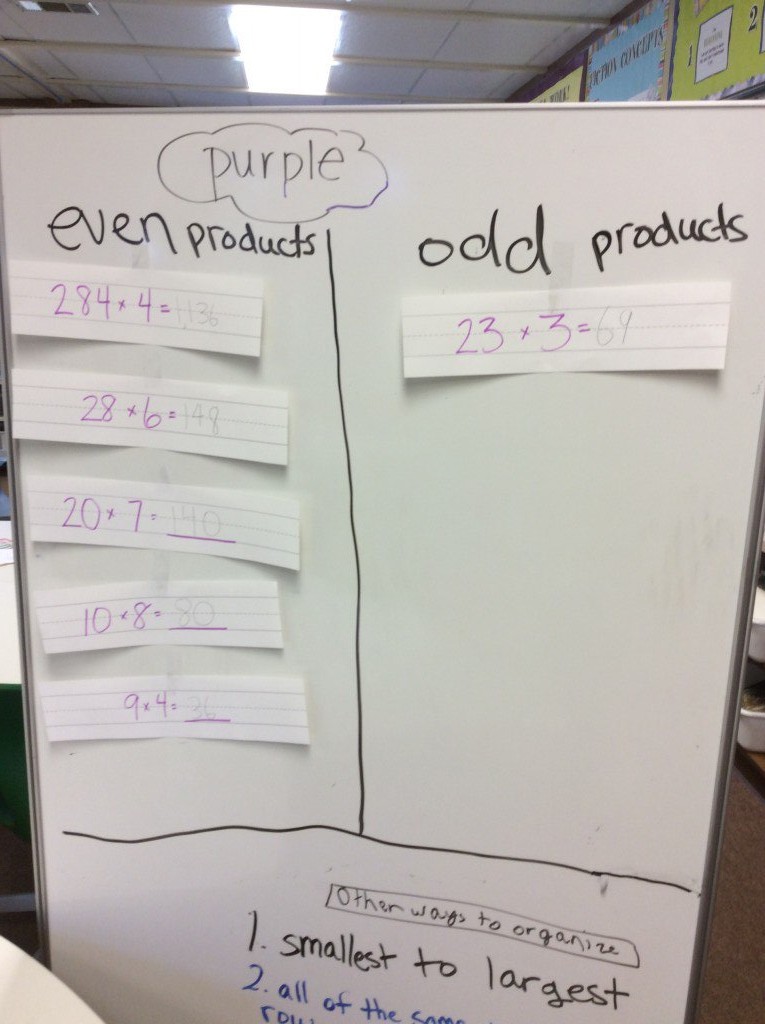 FICTION CONCEPTS
1
2
purple
even products
odd products
284 × 4 = 1,136
23 × 3 = 69
28 × 6 = 148
20 × 7 = 140
10 × 8 = 80
9 × 4 = 36
Other ways to organize
1. smallest to largest
2. all of the same